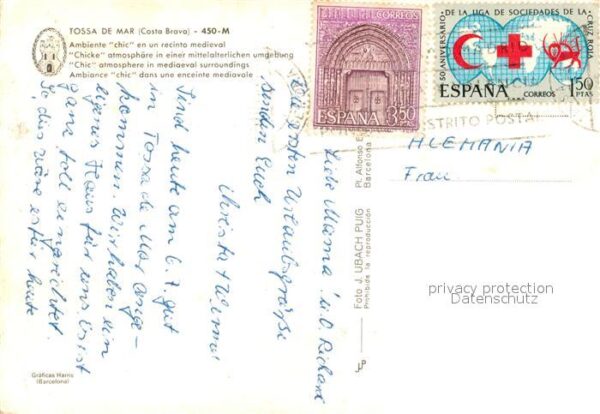 TOSSA DE MAR (Costa Brava) - 450-M
Ambiente "chic" en un recinto medieval
"Chicke" atmosphäre in einer mittelalterlichen umgebung
"Chic" atmosphere in mediaeval surroundings
Ambiance "chic" dans une enceinte mediovale
CORREOS
3,50
ESPAÑA
50 ANIVERSARIO DE LA LIGA DE SOCIEDADES DE LA CRUZ ROJA
ESPAÑA CORREOS 1,50 PTAS
DISTRITO POSTAL
ALEMANIA
Frau
Liebe Mama! u. O. Richard
Die ersten Urlaubsgrüße
senden Euch
Christa + Werner
Sind heute am 6.7. gut
in Tossa de Mar ange-
kommen. Wir haben ein
eigenes Haus für uns. Es ist
ganz toll eingerichtet.
So das wäre es für heute
Foto J. UBACH PUIG
Prohibida la reproducción
Pl. Alfonso
Barcelona
Gráficas Harris
(Barcelona)
privacy protection
Datenschutz